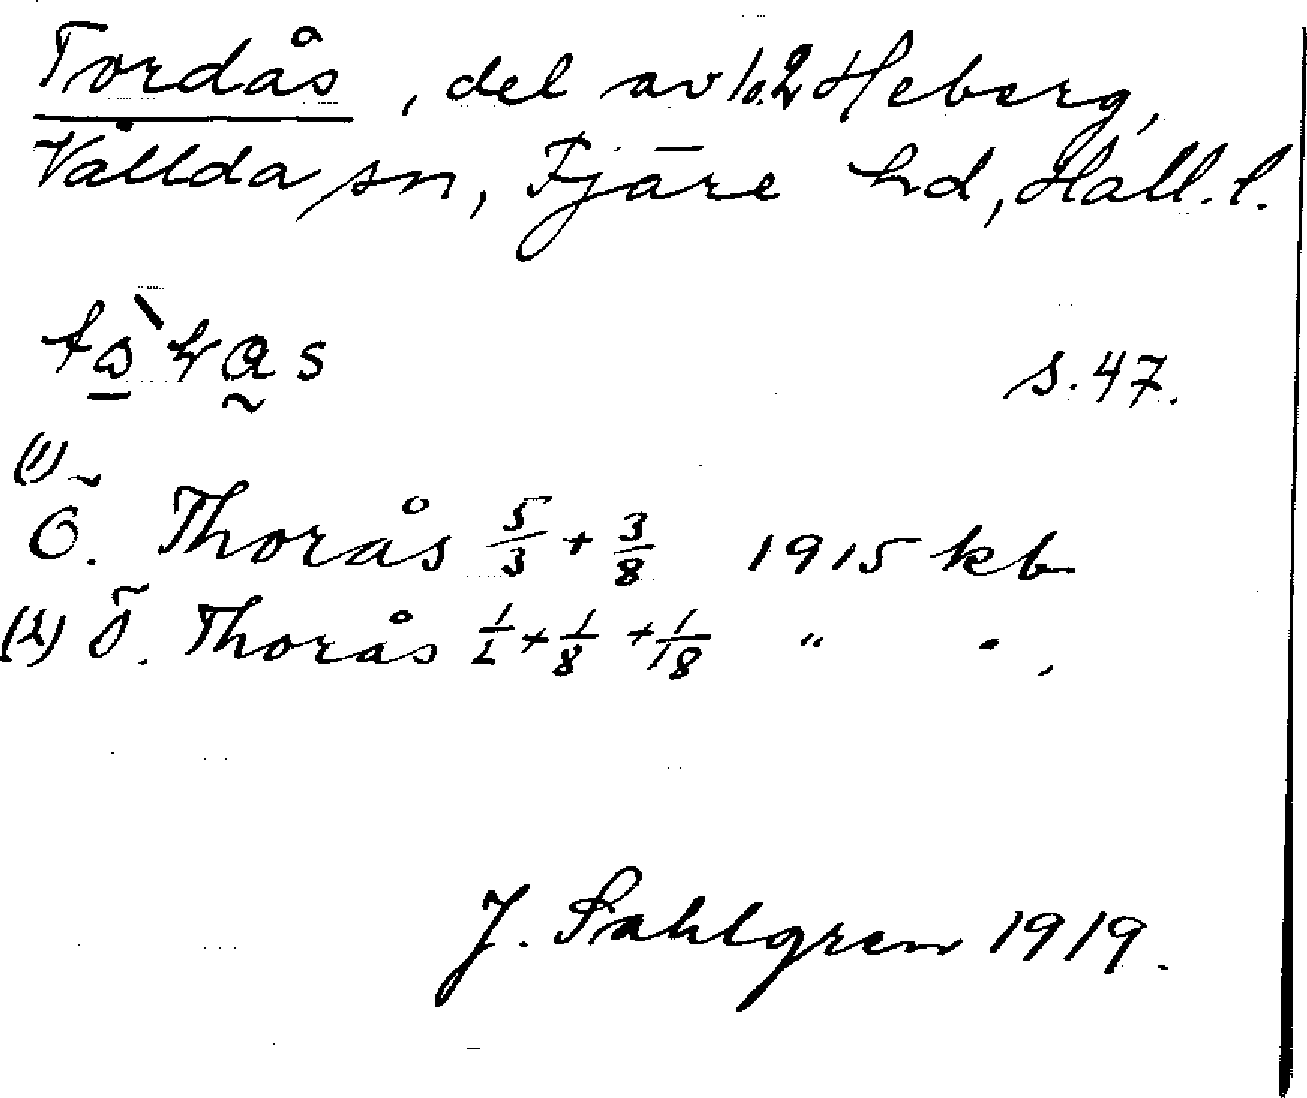 Tordås, del av 1o.2 Heberg,
Vallda sn, Fjäre hd, Hall. l.
s. 47.
(1)
Ö. Thorås 5/3 + 3/8 1915 kb
(2) Ö. Thorås 1/2 + 1/8 + 1/18 " " .
J. Sahlgren 1919.